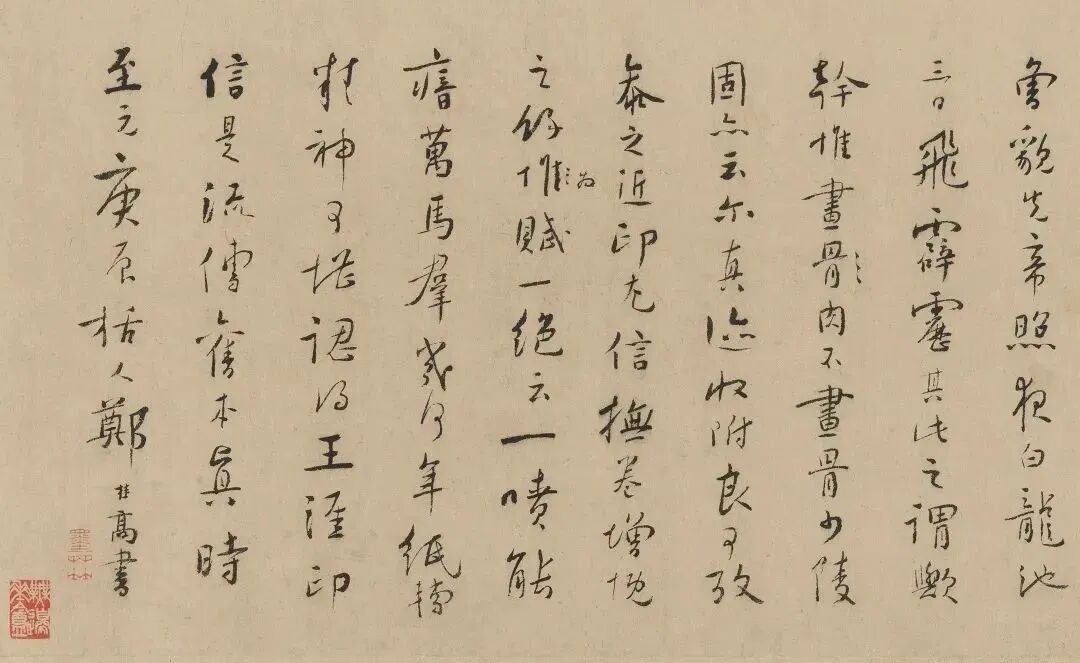 曾貌先帝照夜白龍池
三日飛霹靂其此之謂歟
幹惟畫骨肉不畫骨少陵
固亦云尔真迹收附良可攷
叅之近印尤信撫卷增慨
之餘惟為賦一絕云一噴能
瘖萬馬羣幾何年紙
神可堪認得王涯印
信是流傳舊本真時
至元庚辰栝人鄭高書